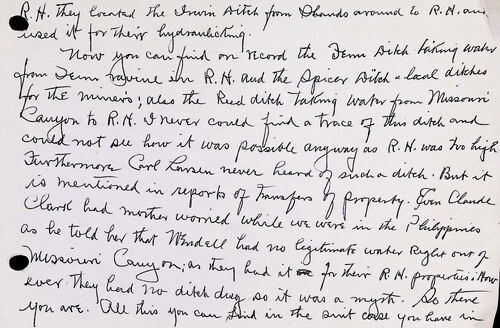 R.H. they located the Irwin Ditch from Islands around to R.H. and
used it for their hydraulicking.
Now you can find on record the Fenn Ditch taking water
from Fenn ravine in R.H. and the Spicer Ditch - local ditches
for the miners; also the Reed ditch taking water from Missouri
Canyon to R.H. I never could find a trace of this ditch and
could not see how it was possible anyway as R.H. was too high
Furthermore Carl Larsen never heard of such a ditch. But it
is mentioned in reports of transfers of property. Even Claude
Clark had mother worried while we were in the Philippines
as he told her that Wendell had no legitimate water Right out of
Missouri Canyon; as they had it for their R.H. properties. How
ever they had no ditch dug so it was a myth. So there
you are. All this you can find in the suit case you have in